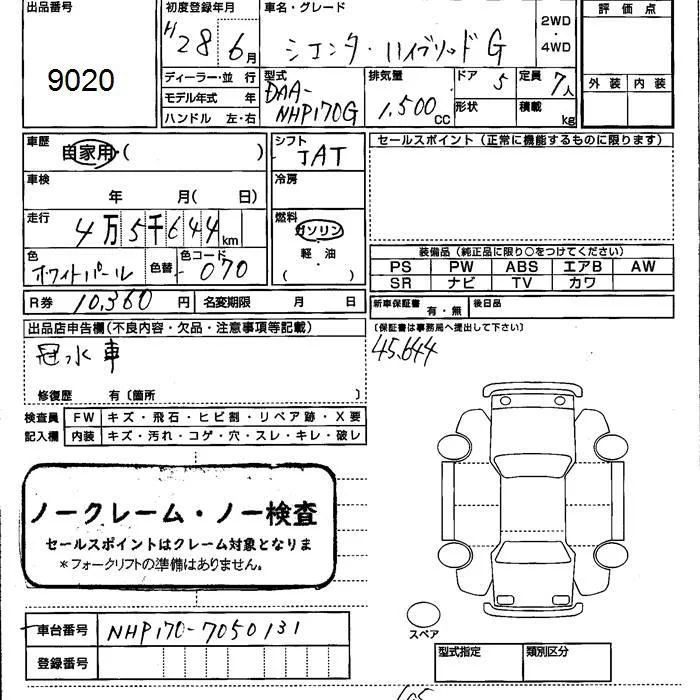 出品番号
9020
初度登録年月
H28 6月
車名・グレード
シエンタ・ハイブリッドG
2WD
・
4WD
評価点
外装 内装
ディーラー・並 行
モデル年式 年
ハンドル 左・右
型式
DAA-
NHP170G
排気量
1,500
cc
ドア 5
形状
定員 7人
積載 kg
車歴
自家用・( )
シフト
IAT
セールスポイント (正常に機能するものに限ります)
車検
年 月( 日)
冷房
走行
4万5千644km
燃料
ガソリン
軽 油
( )
色
ホワイトパール
色替
色コード
-070
装備品 (純正品に限り○をつけてください)
PS PW ABS エアB AW
SR ナビ TV カワ
R券 10,360 円 名変期限 月 日
新車保証書
有・無
後日品
(保証書は事務局へ提出して下さい)
出品店申告欄 (不良内容・欠品・注意事項等記載)
冠水車
45,644
修復歴 有〔箇所 〕
検査員
記入欄
FW キズ・飛石・ヒビ割・リペア跡・X要
内装 キズ・汚れ・コゲ・穴・スレ・キレ・破レ
ノークレーム・ノー検査
セールスポイントはクレーム対象となりま
*フォークリフトの準備はありません。
車台番号 NHP170-7050131
登録番号
スペア
型式指定 類別区分